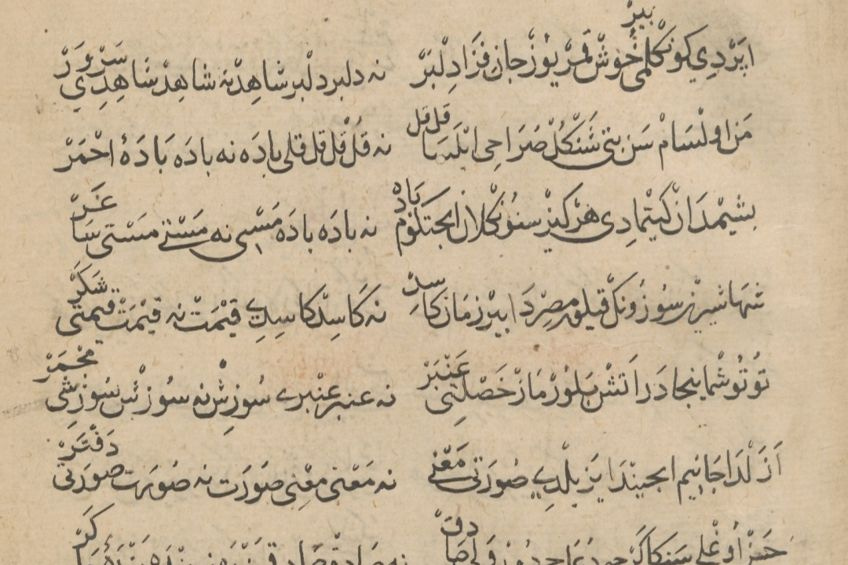 اپردی کونکلمی بیر خوش قمر یوز جان فزا دلبر نه دلبر دلبر شاهد نه شاهد شاهدی سرور
من اولسام سن بتی شنکل صراحی ایلمسا قل قل نه قل قل قل قلی باده نه باده بادهٔ احمر
بشیمدان کیتمادی هرکیز سنونکلان ایجتکوم باده نه باده بادهٔ مسی نه مستی مستی ساغر
شها شیرین سوزونک قیلور مصردا بیر زمان کاسد نه کاسد کاسدی قیمت نه قیمت قیمتی شکر
توتوشماینجا در اتش بلورماز خصلتی عنبر نه عنبر عنبری سوزش نه سوزش سوزشی مجمر
ازلدا جانیم ایجیندا یزیلدی صورتی معنی نه معنی معنی صورت نه صورت صورتی دفتر
حسن اوغلی سنکا کرچی دعاجیدور ولی صادق نه صادق